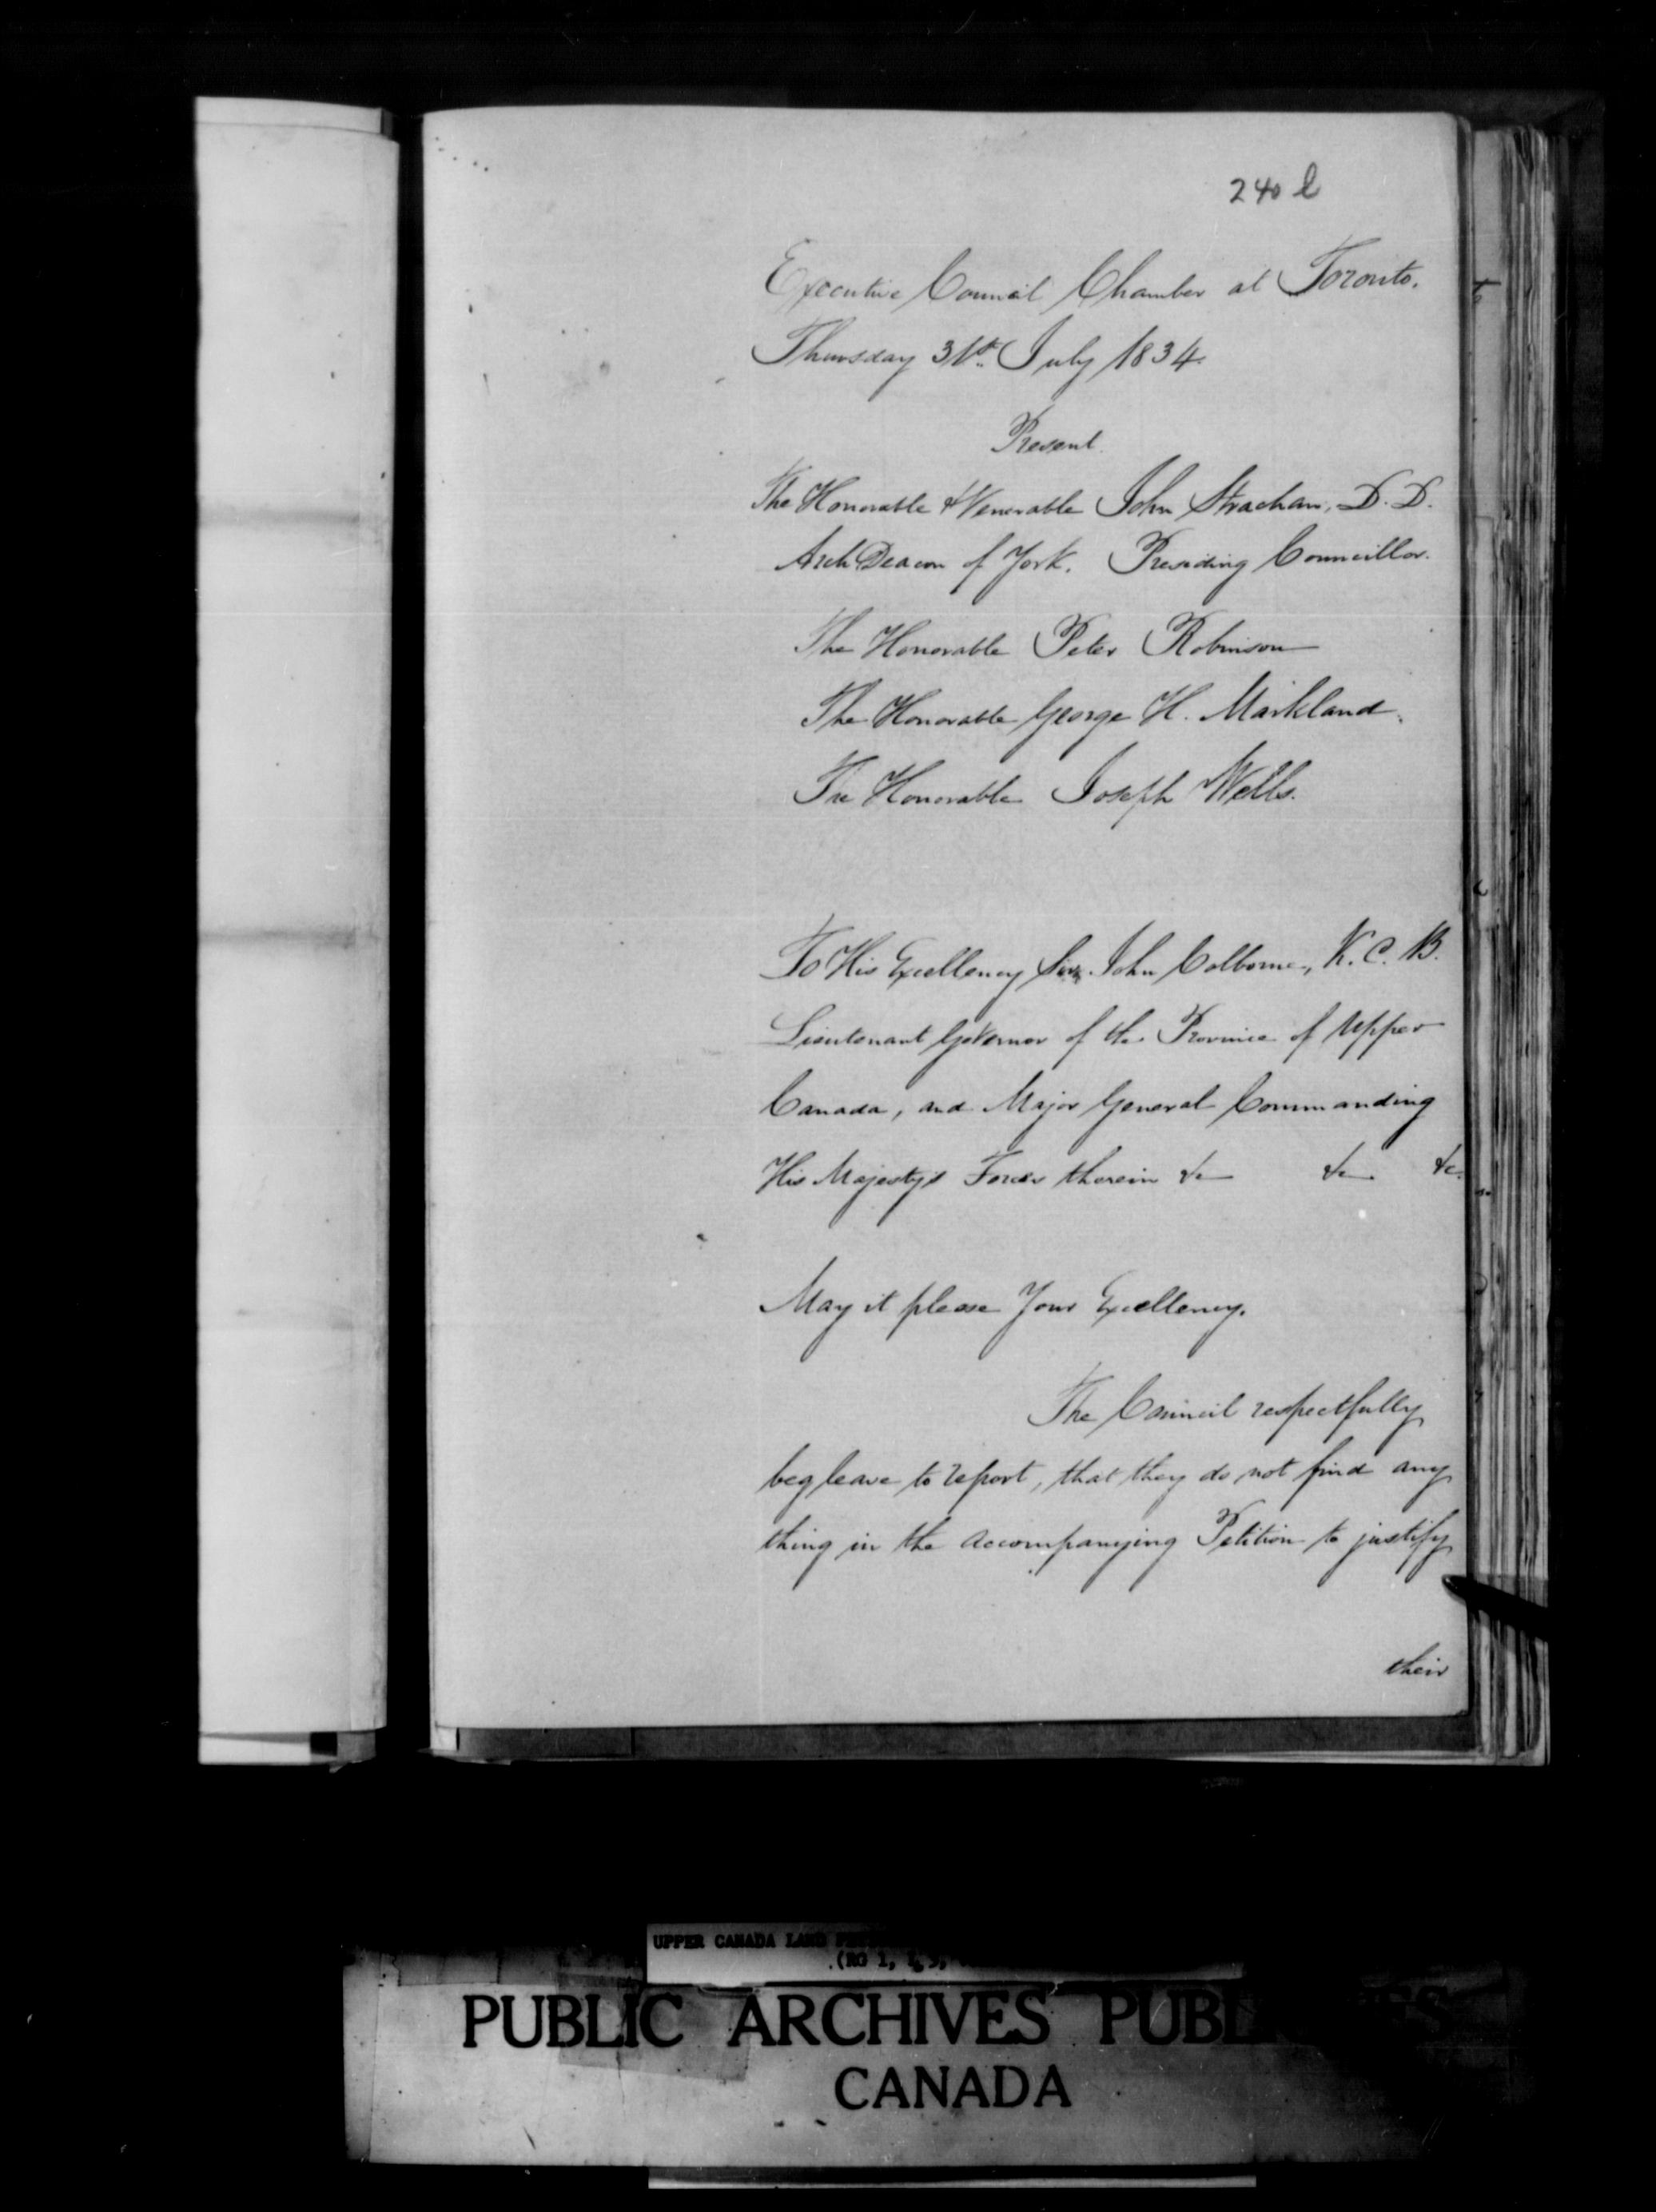 240 l
Executive Council Chamber at Toronto.
Thursday 31st. July 1834.
Present.
The Honorable & Venerable John Strachan, D. D.
Arch Deacon of York. Presiding Councillor.
The Honorable Peter Robinson
The Honorable George H. Markland.
The Honorable Joseph Wells.
To His Excellency Sir John Colborne, K. C. B.
Lieutenant Governor of the Province of Upper
Canada, and Major General Commanding
His Majesty's Forces therein &c &c &c.
May it please Your Excellency.
The Council respectfully
beg leave to report, that they do not find any
thing in the accompanying Petition to justify
their
UPPER CANADA LAND
(RG 1,
PUBLIC ARCHIVES PUBL
CANADA